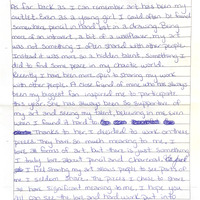 As far back as I can remember art has been my
outlet. Even as a young girl I could often be found
somewhere, pencil in hand lost in a drawing. Being
more of an introvert, a bit of a wallflower, my art
was not something I often shared with other people.
Instead it was more so a hidden secret. Something I
did to find some peace in my chaotic world.
Recently I have been more open to sharing my work
with other people. A close friend of mine who has always
been my biggest fan inspired me to participate
this year. She has always been so supportive of
my art and seeing my talent, believing in me even
when I found it hard to
Thanks to her, I decided to work on these
pieces. They have so much meaning to me, I
love all forms of art, but there is just something
I truly love about pencil and charcoal.
I feel sharing my art shows people to see parts of
me I seldom share. The pieces I chose to share
all have significant meaning to me. I hope you
all can see the love and hard work put into